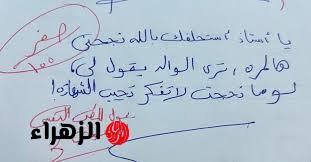 صفر
١٠٠
يا أستاذ استحلفك بالله نجحني
هالمره، ترى الوالد يقول لي،
لو ما نجحت لا تفكر تجيب الشهاده!
الزهراء